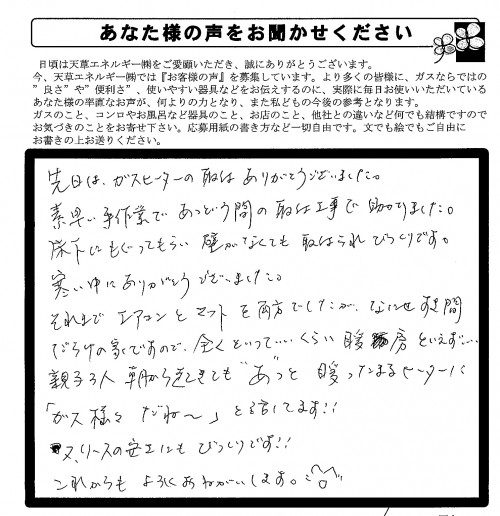 あなた様の声をお聞かせください
日頃は天草エネルギー㈱をご愛顧いただき、誠にありがとうございます。
今、天草エネルギー㈱では『お客様の声』を募集しています。より多くの皆様に、ガスならではの
”良さ”や”便利さ”、使いやすい器具などをお伝えするのに、実際に毎日お使いいただいている
あなた様の率直なお声が、何よりの力となり、また私どもの今後の参考となります。
ガスのこと、コンロやお風呂など器具のこと、お店のこと、他社との違いなど何でも結構ですので
お気づきのことをお寄せ下さい。応募用紙の書き方など一切自由です。文でも絵でもご自由に
お書きの上お送りください。
先日は、ガスヒーターの取付ありがとうございました。
素早い手作業であっという間の取付工事で助かりました。
床下にもぐってもらい壁がなくても取付られびっくりです。
寒い中にありがとうございました。
それまでエアコンとマットを両方でしたが、なにせすき間
だらけの家ですので、全くといって……くらい暖房といえず…
親子3人朝から起きても"あ"っと暖ったまるヒーターに
「ガス様々だね〜」と話してます!!
又、リースの安さにもびっくりです!!
これからもよろしくおねがいします。